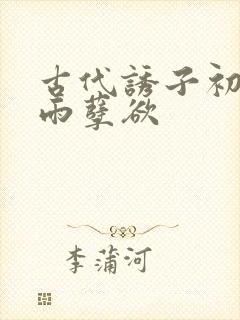 古代誘子初
雨孽欲
李蒲河